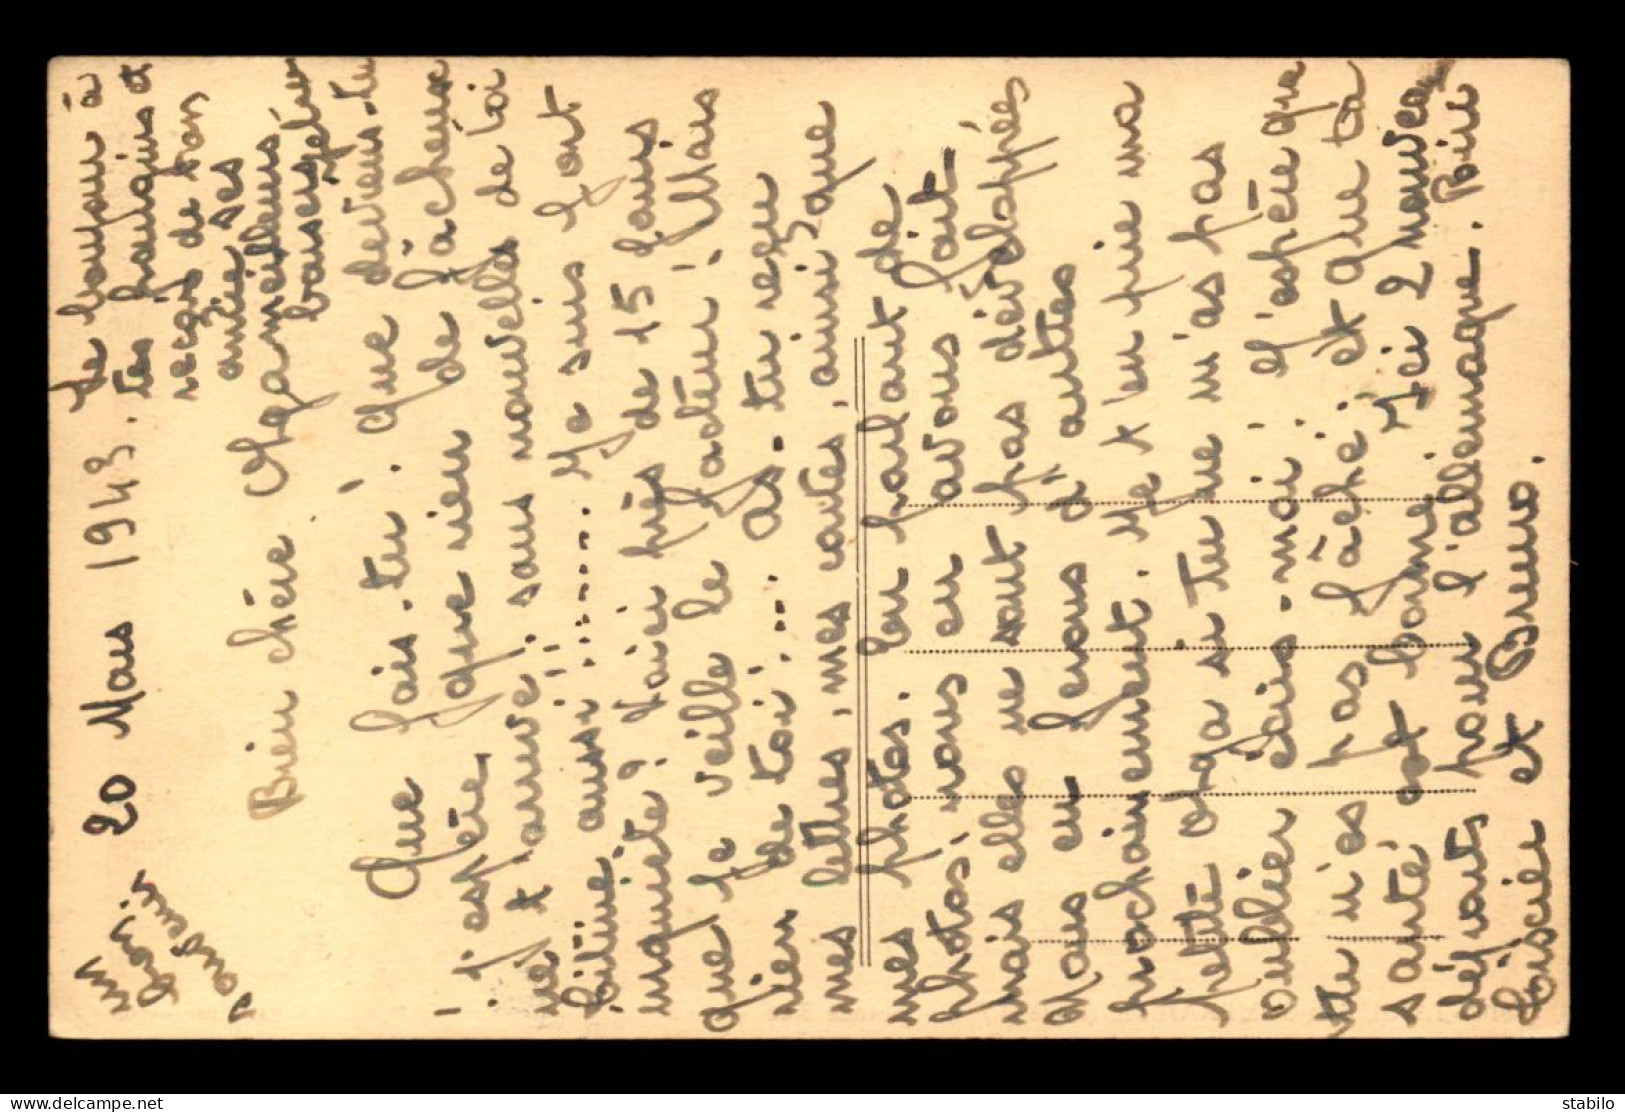 20 Mars 1943.
un
bon
souvenir
le bonjour à
tes parents et
reçois de ton
amie ses
meilleurs
baisers
Bien chère Olga
Que fais-tu? Que deviens-tu
j'espère que rien de fâcheux
ne t'arrive, sans nouvelles de toi
aussi....... Je suis tout
inquiète! Voici près de 15 jours
que je veille le facteur! Mais
rien de toi!... As-tu reçu
mes lettres, mes cartes, ainsi que
mes photos. En parlant de
photos, nous en avons fait
mais elles ne sont pas développées
Nous en ferons d'autres
prochainement. Je t'en prie ma
petite Olga si tu ne m'as pas
oubliée écris-moi! J'espère que
tu n'es pas fâchée, et que ta
santé est bonne. Ici 2 nouveaux
départs pour l'allemagne.
et Bruno.
delcampe.net
stabilo